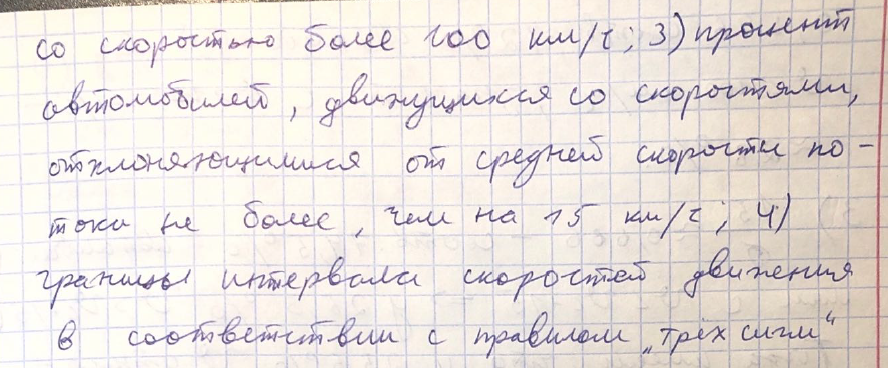 со скоростью более 100 км/ч; 3) процент
автомобилей, движущихся со скоростями,
отклоняющимися от средней скорости по-
тока не более, чем на 15 км/ч; 4)
границы интервала скоростей движения
в соответствии с правилом „трёх сигм“